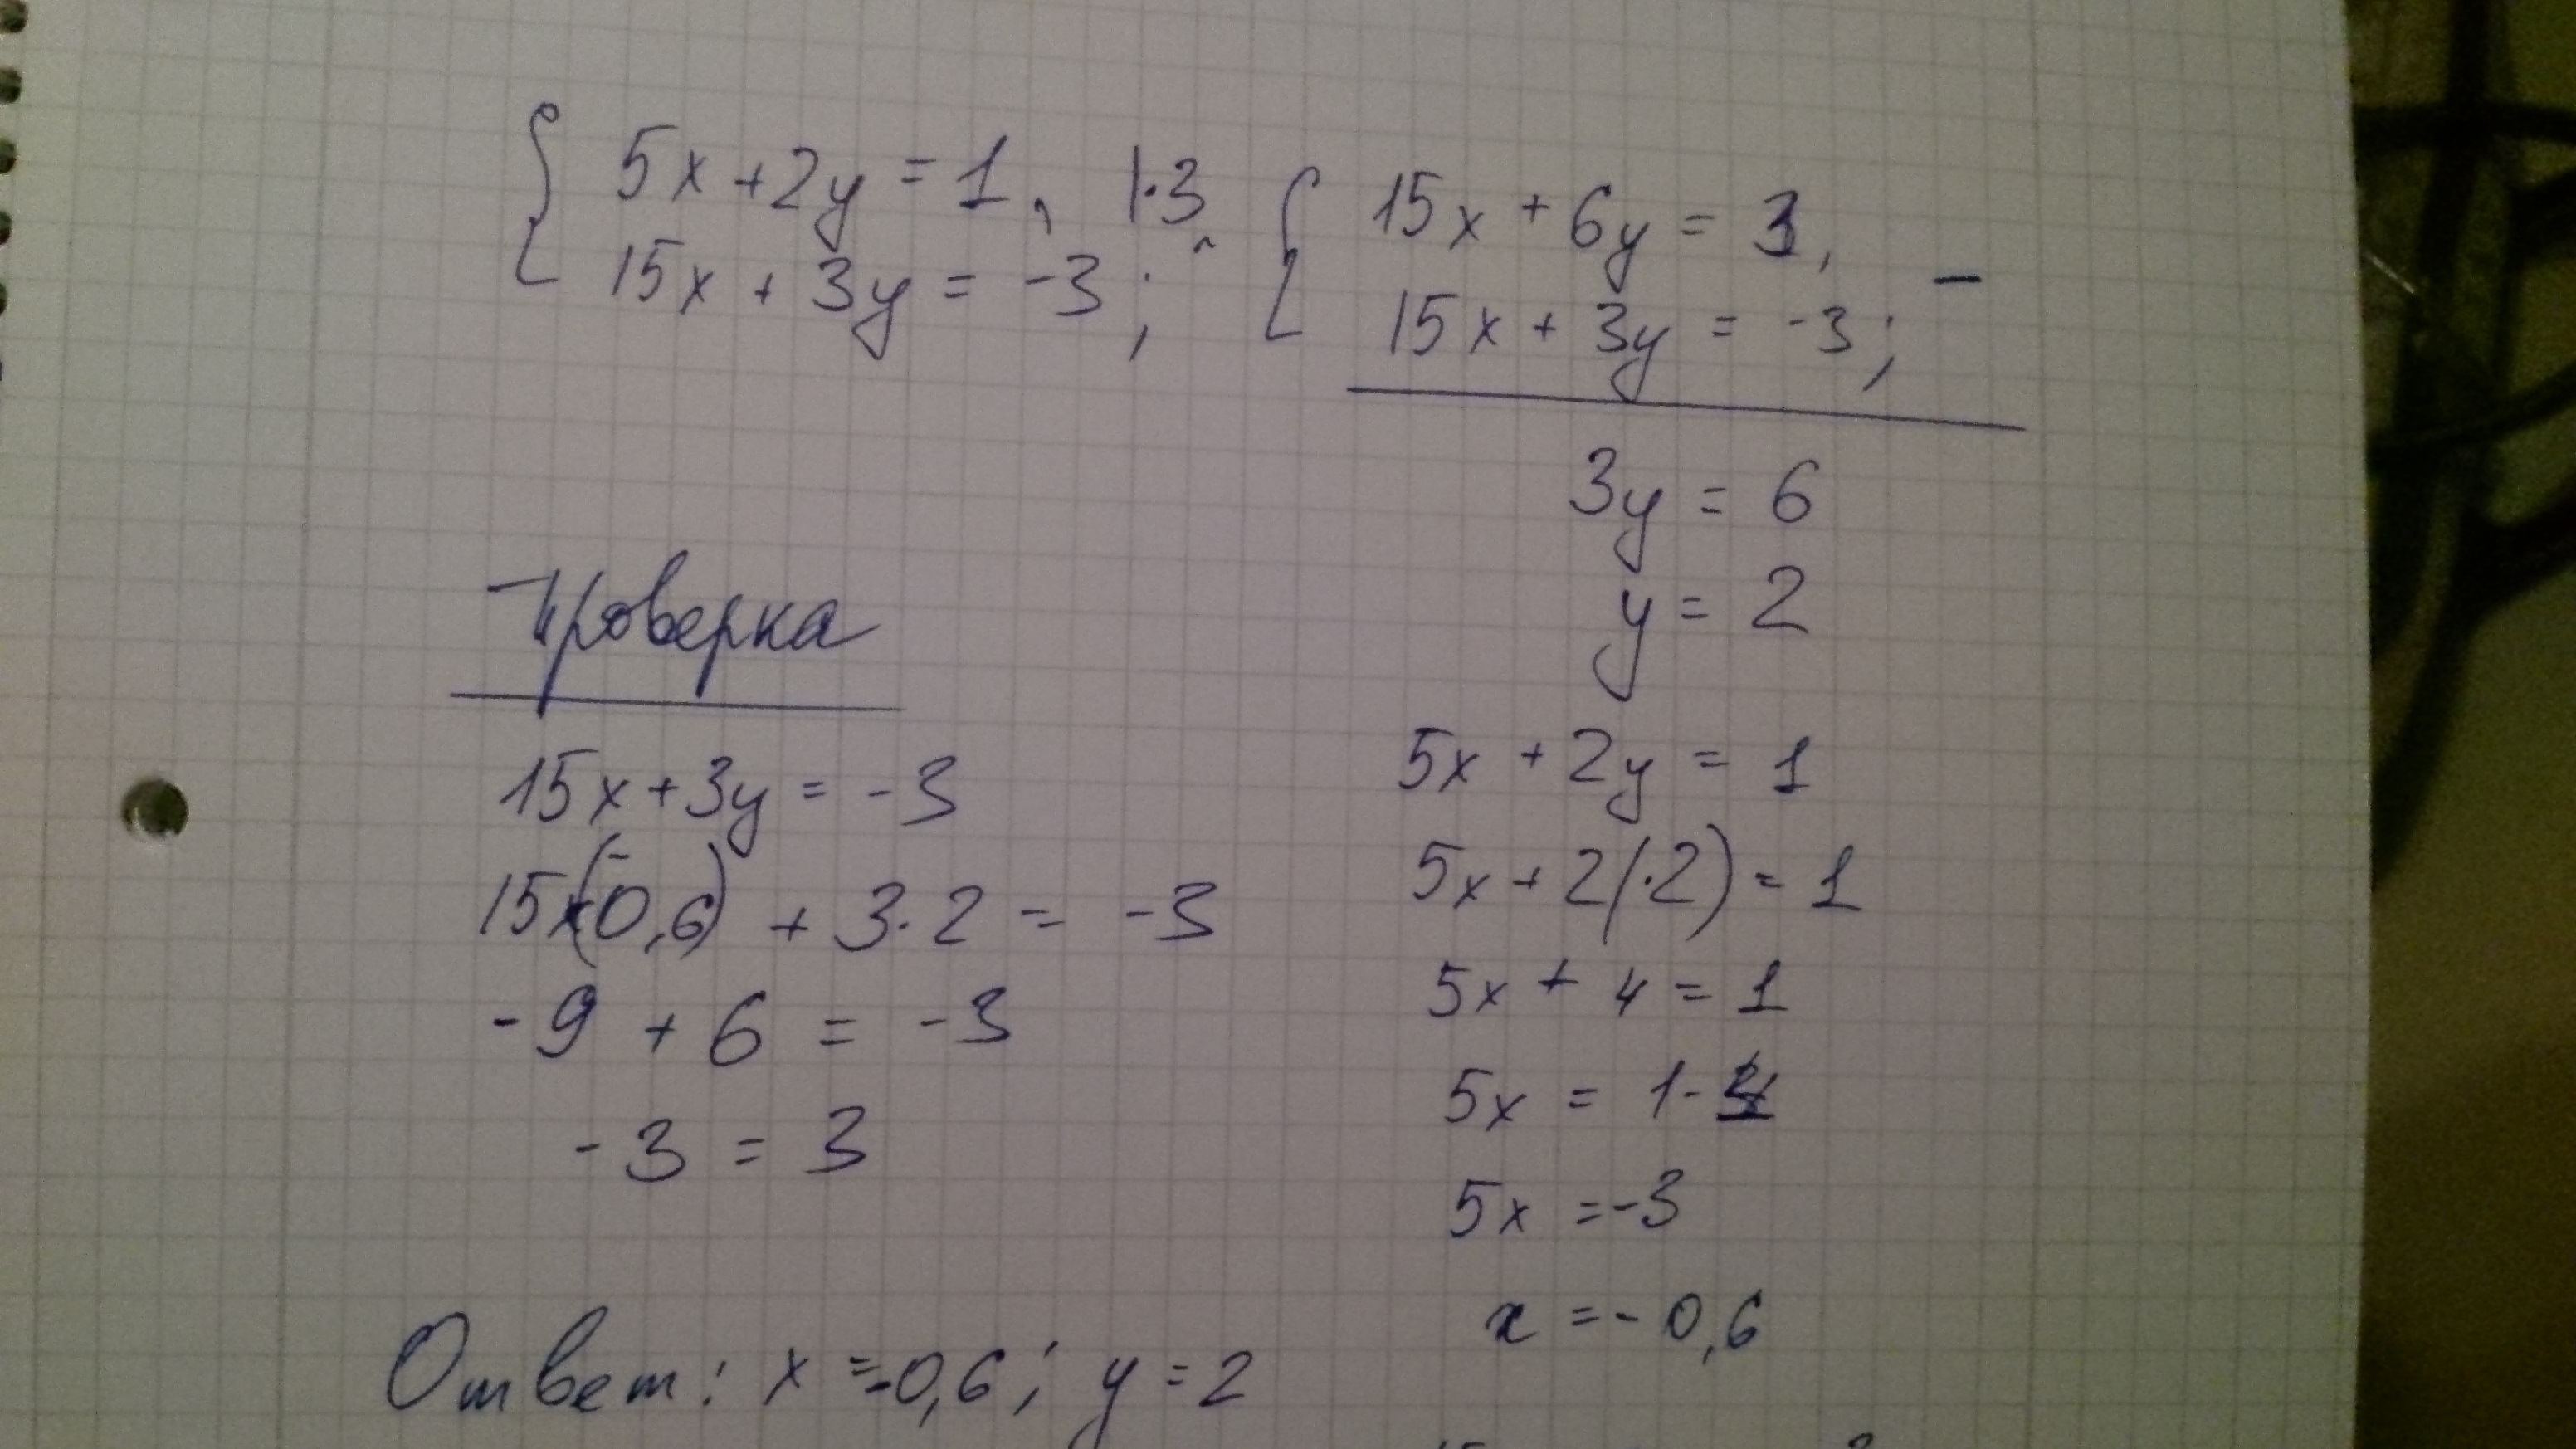 5x + 2y = 1, | · 3
15x + 3y = -3;
15x + 6y = 3,
15x + 3y = -3; −
3y = 6
y = 2
5x + 2y = 1
5x + 2(·2) = 1
5x + 4 = 1
5x = 1 - 4
5x = -3
x = -0,6
Проверка
15x + 3y = -3
15x(-0,6) + 3·2 = -3
-9 + 6 = -3
-3 = 3
Ответ: x = -0,6; y = 2